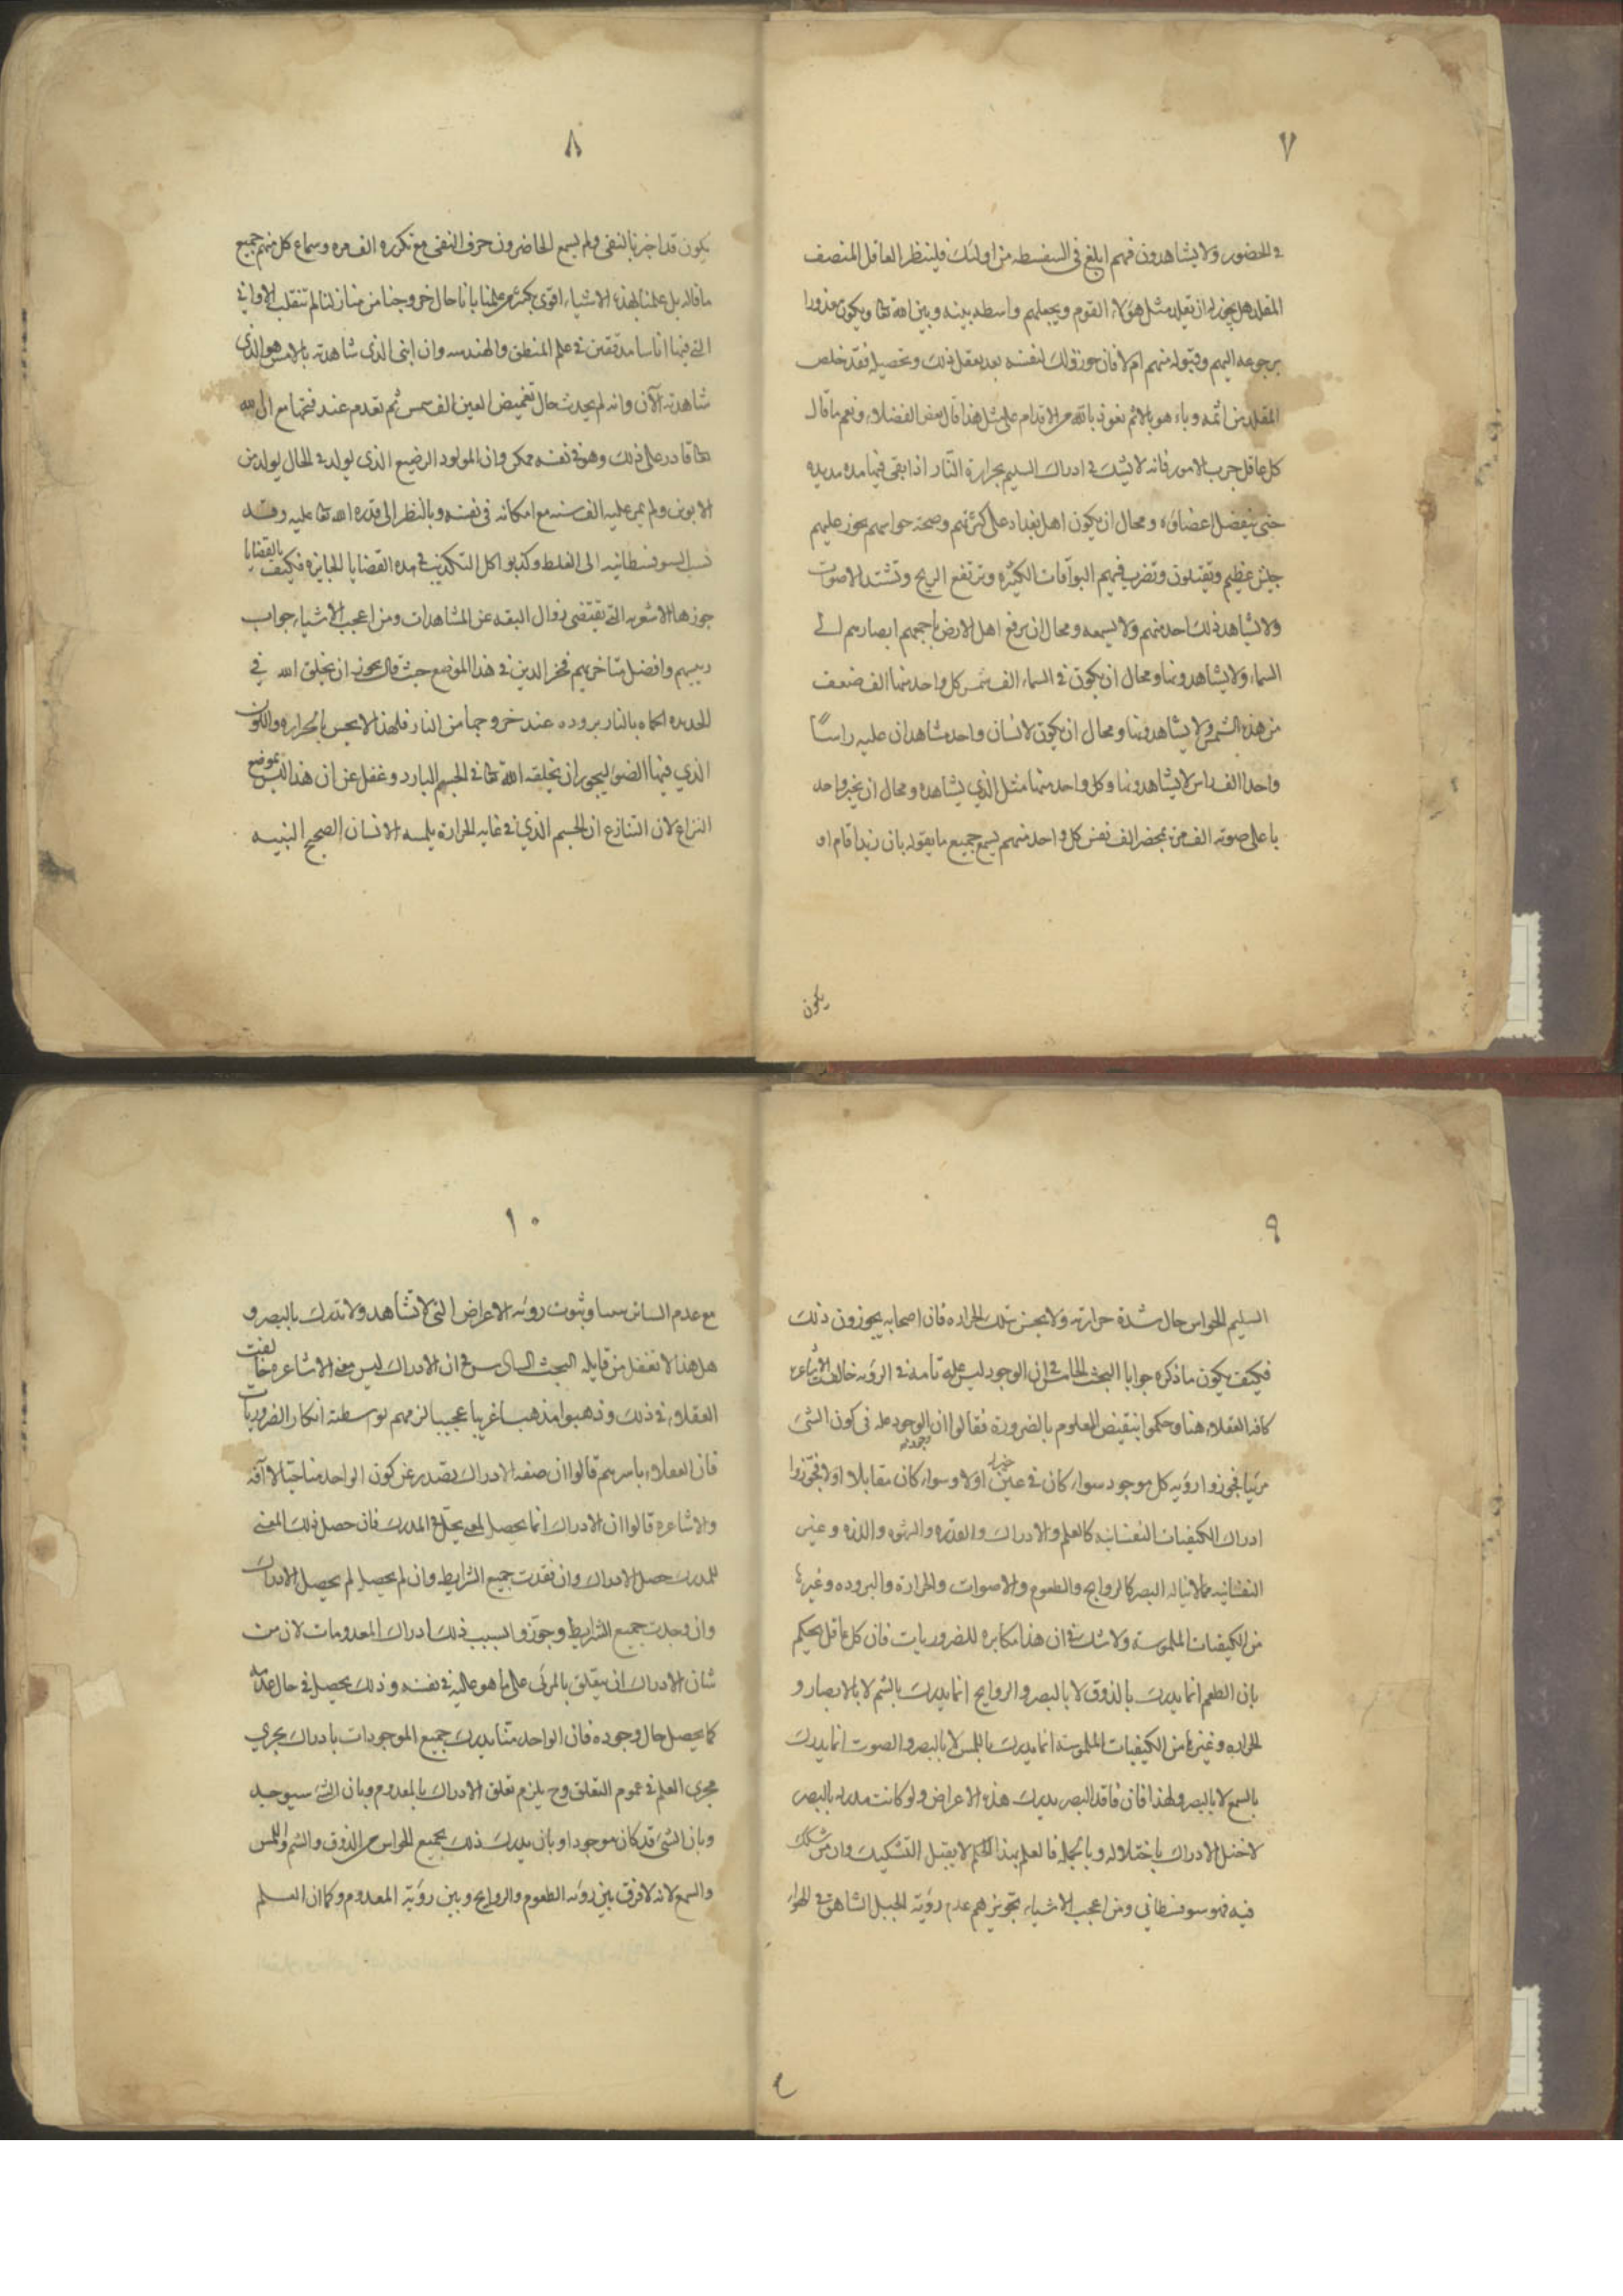 ٧
في الحضور ولا يشاهدون فهم ابلغ في السفسطه من اولئك فلينظر العاقل المنصف
المقلد هل يجوز له ان يقلد مثل هؤلاء القوم ويجعلهم واسطه بينه وبين الله تعا ويكون معذورا
برجوعه اليهم وقبوله منهم ام لا فان جوز ذلك لنفسه بعد تعقل ذلك وتحصيله فقد خلص
المقلد من اثمه وباء هو بالاثم نعوذ بالله من الاقدام على مثل هذا قال بعض الفضلاء ونعم ما قال
كل عاقل جرب الامور فانه لا يشك في ادراك السليم بحرارة النار اذا بقي فيها مده مديده
حتى ينفصل اعضاؤه ومحال ان يكون اهل بغداد على كثرتهم وصحة حواسهم يجوز عليهم
جيش عظيم ويقتلون وتضرب فيهم البوقات الكثيره ويرتفع الريح وتشتد الاصوات
ولا يشاهد ذلك احد منهم ولا يسمعه ومحال ان يرفع اهل الارض باجمعهم ابصارهم الى
السماء ولا يشاهدونها ومحال ان يكون في السماء الف شمس كل واحد منها الف ضعف
من هذه الشمس ولا يشاهدونها ومحال ان يكون لانسان واحد مشاهد ان عليه راسًا
واحدا الف راس لا يشاهدونها وكل واحد منها مثل الذي يشاهده ومحال ان يخبر واحد
باعلى صوته الف مره بمحضر الف نفس كل واحد منهم يسمع جميع ما يقوله بان زيدا قام او
يكون
٨
يكون قد اخبر بالنفي ولم يسمع الحاضرون حرف النفي مع تكرره الف مره وسماع كل منهم جميع
ما قاله بل علمنا بهذه الاشياء اقوى بكثير من علمنا بانا حال خروجنا من منازلنا لم تنقلب الاواني
التي فيها اناسا مدققين في علم المنطق والهندسه وان ابني الذي شاهدته بالامس هو الذي
شاهدته الآن وانه لم يحدث حال تغميض العين الف شمس ثم تعدم عند فتحها مع ان الله
تعا قادر على ذلك وهو في نفسه ممكن وان المولود الرضيع الذي يولد في الحال يولد من
الابوين ولم يمر عليه الف سنه مع امكانه في نفسه وبالنظر الى قدره الله تعا عليه وقد
نسب السوفسطانيه الى الغلط وكذبوا كل التكذيب في هذه القضايا الجايزه فكيف بالقضايا
جوزها الاشعريه التي يقتضي زوال الثقه عن المشاهدات ومن اعجب الاشياء جواب
رييسهم وافضل متاخريهم فخر الدين في هذا الموضع حيث قال يجوز ان يخلق الله في
الحديده المحماه بالنار بروده عند خروجها من النار فلهذا لا يحس بالحراره واللون
الذي فيها الضوء يجوز ان يخلقه الله تعا في الجسم البارد وغفل عن ان هذا ليس بموضع
النزاع لان التنازع ان الجسم الذي في غايه الحرارة يلمسه الانسان الصحيح البنيه
٩
السليم الحواس حال شدة حرارته ولا يحس بتلك الحراره فان اصحابه يجوزون ذلك
فكيف يكون ما ذكره جوابا البحث الخامس في ان الوجود ليس علة تامه في الرؤيه خالفت الاشاعره
كافه العقلاء هنا وحكموا بنقيض المعلوم بالضرورة فقالوا ان الوجود عله في كون الشئ
مرئيا فجوزوا رؤيه كل موجود سواء كان في حيز اولا وسواء كان مقابلا اولا فجوزوا
ادراك الكيفيات النفسانيه كالعلم والارادة والقدره والشهوه واللذه وغير
النفسانيه مما لا يناله البصر كالروايح والطعوم والاصوات والحرارة والبروده وغيرها
من الكيفيات الملموسة ولا شك في ان هذا مكابره للضروريات فان كل عاقل يحكم
بان الطعم انما يدرك بالذوق لا بالبصر والروايح انما يدرك بالشم لا بالابصار و
الحراره وغيرها من الكيفيات الملموسة انما يدرك باللمس لا بالبصر والصوت انما يدرك
بالسمع لا بالبصر ولهذا فان فاقد البصر يدرك هذه الاعراض ولو كانت مدركه بالبصر
لاختل الادراك باختلاله وبالجملة فالعلم بهذا الحكم لا يقبل التشكيك وان من شكك
فيه فهو سوفسطاني ومن اعجب الاشياء تجويزهم عدم رؤية الجبل الشاهق في الهواء
١٠
مع عدم الساتر وثبوت رؤيه الاعراض التي لا تشاهد ولا تدرك بالبصر و
هل هذا الا تغفل من قايله البحث السادس في ان الادراك ليس معنى الاشاعره خالفت
العقلاء في ذلك وذهبوا مذهبا غريبا عجيبا لزمهم بواسطته انكار الضروريات
فان العقلاء باسرهم قالوا ان صفه الادراك يصدر عن كون الواحد منا حيا لا آفه
والاشاعره قالوا ان الادراك انما يحصل لمعنى يحل في المدرك فان حصل ذلك المعنى
للمدرك حصل الادراك وان فقدت جميع الشرايط وان لم يحصل لم يحصل الادراك
وان وجدت جميع الشرايط وجوزوا بسبب ذلك ادراك المعدومات لان من
شان الادراك ان يتعلق بالمرئي على ما هو عليه في نفسه وذلك يحصل في حال عدمه
كما يحصل حال وجوده فان الواحد منا يدرك جميع الموجودات بادراك يجري
مجرى العلم في عموم التعلق وح يلزم تعلق الادراك بالمعدوم وبان الشئ سيوجد
وبان الشئ قد كان موجودا وبان يدرك ذلك بجميع الحواس من الذوق والشم واللمس
والسمع لانه لا فرق بين رؤيه الطعوم والروايح وبين رؤية المعدوم وكما ان العلم